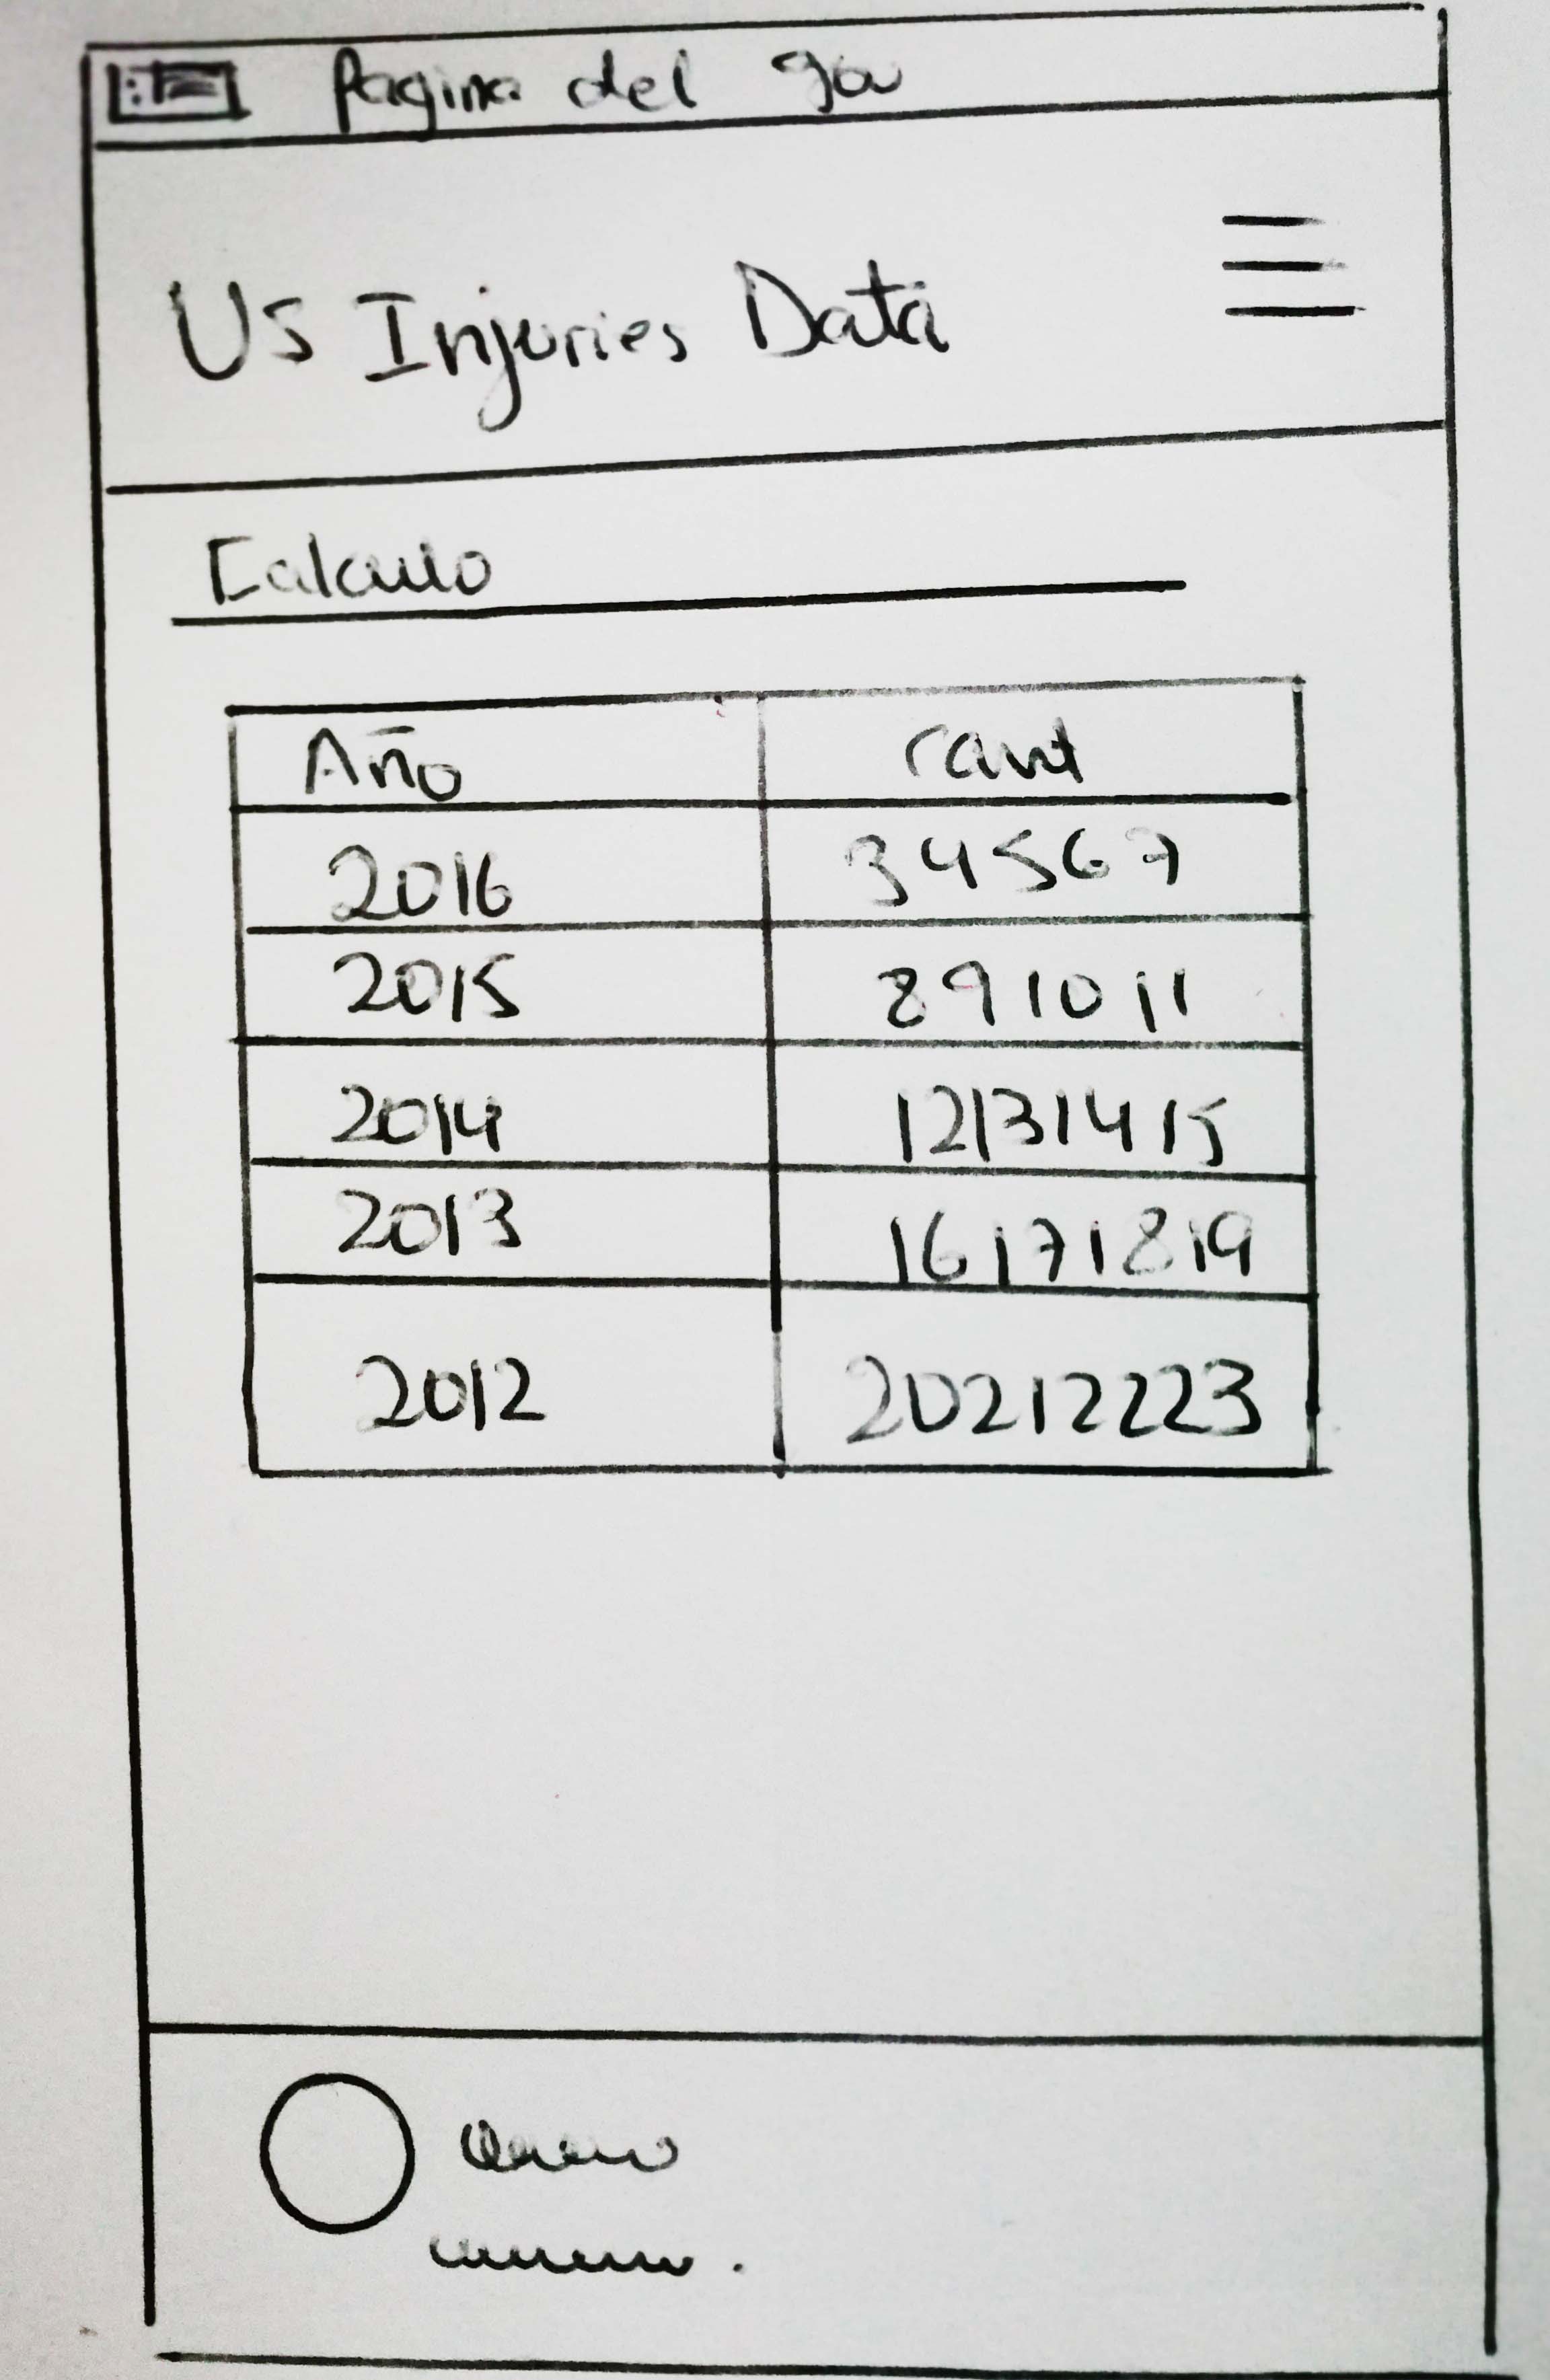 Pagina del gov
Us Injuries Data
Calculo
Año cant
2016 34567
2015 891011
2014 12131415
2013 16171819
2012 20212223